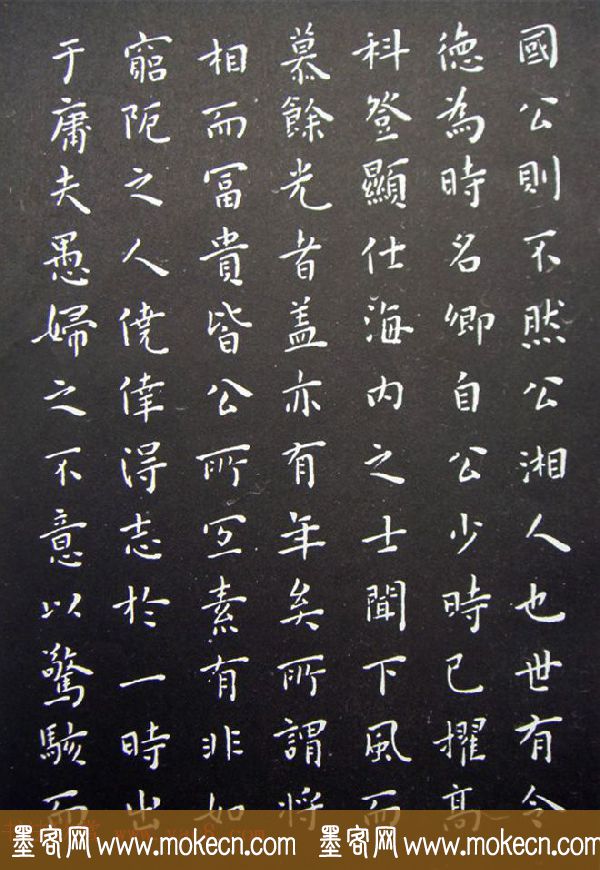 國公則不然公湘人也世有令
德為時名卿自公少時已擢髙
科登顯仕海内之士聞下風而
慕餘光者盖亦有年矣所謂将
相而冨貴皆公所冝素有非如
窮阨之人僥倖得志於一時出
于庸夫愚婦之不意以驚駭而
墨客网 www.mokecn.com 墨客网 www.mokecn.com